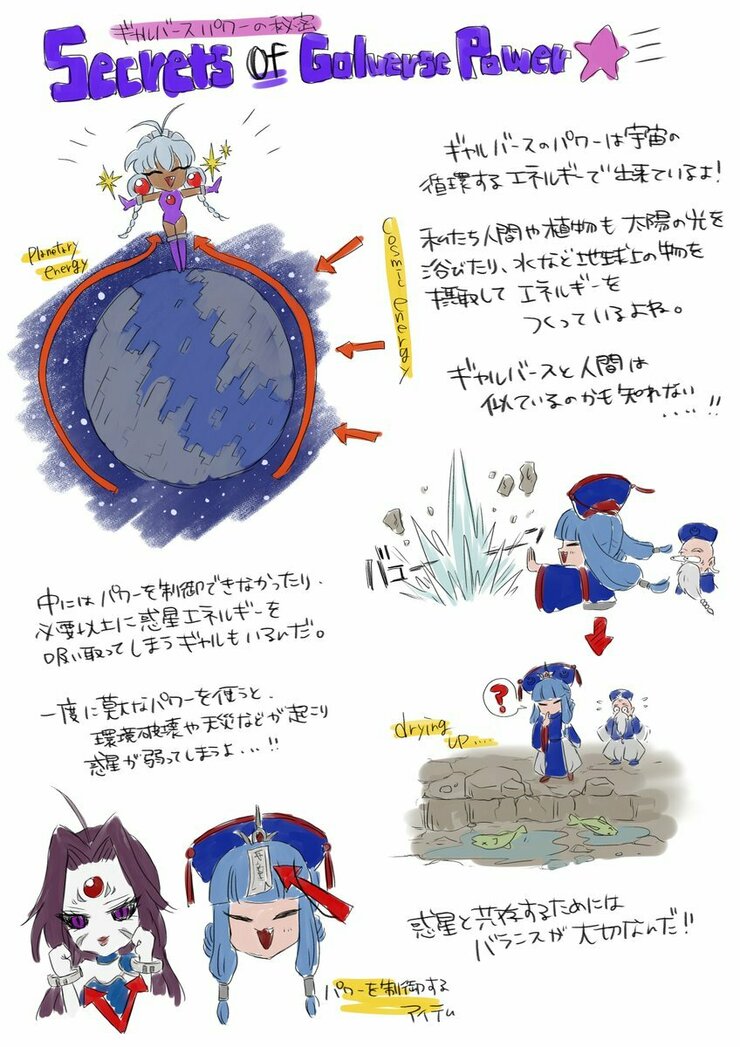 ギャルバースパワーの秘密
Secrets of Galverse Power
ギャルバースのパワーは宇宙の
循環するエネルギーで出来ているよ!
私たち人間や植物も太陽の光を
浴びたり、水など地球上の物を
摂取してエネルギーを
つくっているよね。
ギャルバースと人間は
似ているのかも知れない
....!!
Planetary
energy
Cosmic energy
バシューーー
中にはパワーを制御できなかったり、
必要以上に惑星エネルギーを
吸い取ってしまうギャルもいるんだ。
一度に莫大なパワーを使うと、
環境破壊や天災などが起こり
惑星が弱ってしまうよ...!!
?
drying
up....
惑星と共存するためには
バランスが大切なんだ!!
パワーを制御する
アイテム